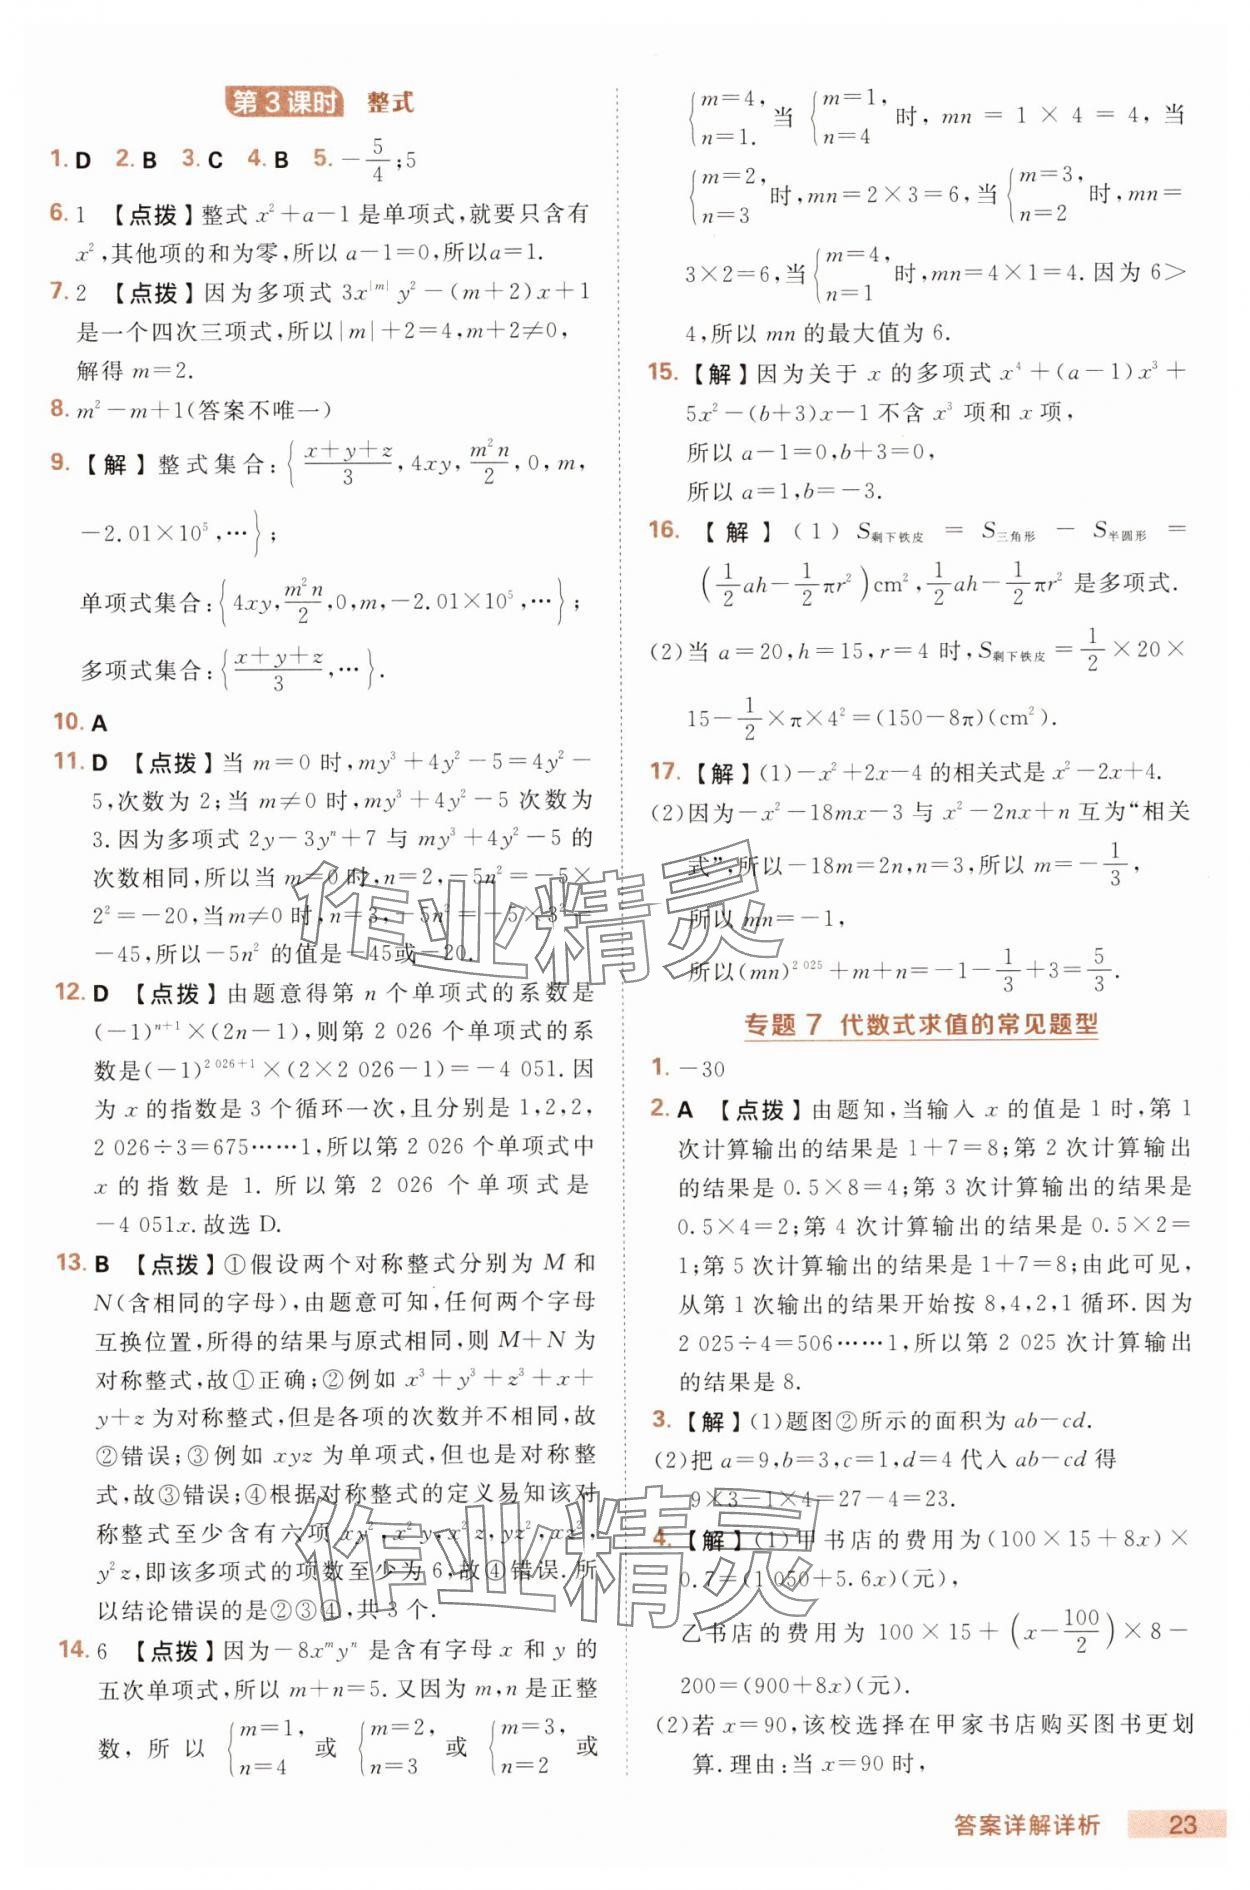 第3课时 整式
1. D 2. B 3. C 4. B 5. －5/4；5
6. 1 【点拨】整式 x²＋a－1 是单项式,就要只含有
x²,其他项的和为零,所以 a－1＝0,所以a＝1.
7. 2 【点拨】因为多项式 3x^|m| y²－(m＋2)x＋1
是一个四次三项式,所以|m|＋2＝4,m＋2≠0,
解得 m＝2.
8. m²－m＋1(答案不唯一)
9. 【解】整式集合:{(x＋y＋z)/3, 4xy, m²n/2, 0, m,
－2.01×10⁵,…};
单项式集合:{4xy, m²n/2, 0, m, －2.01×10⁵,…};
多项式集合:{(x＋y＋z)/3,…}.
10. A
11. D 【点拨】当 m＝0 时,my³＋4y²－5＝4y²－
5,次数为 2;当 m≠0 时,my³＋4y²－5 次数为
3.因为多项式 2y－3yⁿ＋7 与 my³＋4y²－5 的
次数相同,所以当 m＝0时,n＝2,－5n²＝－5×
2²＝－20,当m≠0 时,n＝3,－5n²＝－5×3²＝
－45,所以－5n² 的值是－45或－20.
12. D 【点拨】由题意得第 n 个单项式的系数是
(－1)ⁿ⁺¹×(2n－1),则第 2 026 个单项式的系
数是(－1)^(2 026＋1)×(2×2 026－1)＝－4 051.因
为 x 的指数是 3 个循环一次,且分别是 1,2,2,
2 026÷3＝675……1,所以第 2 026 个单项式中
x 的指数是 1.所以第 2 026 个单项式是
－4 051x.故选 D.
13. B 【点拨】①假设两个对称整式分别为 M 和
N(含相同的字母),由题意可知,任何两个字母
互换位置,所得的结果与原式相同,则 M＋N 为
对称整式,故①正确;②例如 x³＋y³＋z³＋x＋
y＋z 为对称整式,但是各项的次数并不相同,故
②错误;③例如 xyz 为单项式,但也是对称整
式,故③错误;④根据对称整式的定义易知该对
称整式至少含有六项 xy²,x²y,x²z,yz²,xz²,
y²z,即该多项式的项数至少为 6,故④错误.所
以结论错误的是②③④,共 3 个.
14. 6 【点拨】因为－8xᵐyⁿ 是含有字母 x 和 y 的
五次单项式,所以 m＋n＝5.又因为 m,n 是正整
数,所以 {m＝1, n＝4 或 {m＝2, n＝3 或 {m＝3, n＝2 或
{m＝4, n＝1. 当 {m＝1, n＝4 时,mn＝1×4＝4,当
{m＝2, n＝3 时,mn＝2×3＝6,当 {m＝3, n＝2 时,mn＝
3×2＝6,当 {m＝4, n＝1 时,mn＝4×1＝4.因为 6＞
4,所以 mn 的最大值为 6.
15. 【解】因为关于 x 的多项式 x⁴＋(a－1)x³＋
5x²－(b＋3)x－1不含 x³ 项和 x 项,
所以 a－1＝0,b＋3＝0,
所以 a＝1,b＝－3.
16. 【解】(1) S剩下铁皮 ＝ S三角形 － S半圆形 ＝
(1/2 ah－1/2 πr²)cm²,1/2 ah－1/2 πr² 是多项式.
(2)当 a＝20,h＝15,r＝4 时,S剩下铁皮＝1/2×20×
15－1/2×π×4²＝(150－8π)(cm²).
17. 【解】(1)－x²＋2x－4的相关式是 x²－2x＋4.
(2)因为－x²－18mx－3 与 x²－2nx＋n 互为“相关
式”,所以－18m＝2n,n＝3,所以 m＝－1/3,
所以 mn＝－1,
所以(mn)^2 025＋m＋n＝－1－1/3＋3＝5/3.
专题 7 代数式求值的常见题型
1. －30
2. A 【点拨】由题知,当输入 x 的值是 1 时,第 1
次计算输出的结果是 1＋7＝8;第 2 次计算输出
的结果是 0.5×8＝4;第 3 次计算输出的结果是
0.5×4＝2;第 4 次计算输出的结果是 0.5×2＝
1;第 5 次计算输出的结果是 1＋7＝8;由此可见,
从第 1 次输出的结果开始按 8,4,2,1 循环.因为
2 025÷4＝506……1,所以第 2 025 次计算输出
的结果是 8.
3. 【解】(1)题图②所示的面积为 ab－cd.
(2)把 a＝9,b＝3,c＝1,d＝4 代入 ab－cd 得
9×3－1×4＝27－4＝23.
4. 【解】(1)甲书店的费用为(100×15＋8x)×
0.7＝(1 050＋5.6x)(元),
乙书店的费用为 100×15＋(x－100/2)×8－
200＝(900＋8x)(元).
(2)若 x＝90,该校选择在甲家书店购买图书更划
算.理由:当 x＝90 时,
答案详解详析 23
作业精灵
作业精灵